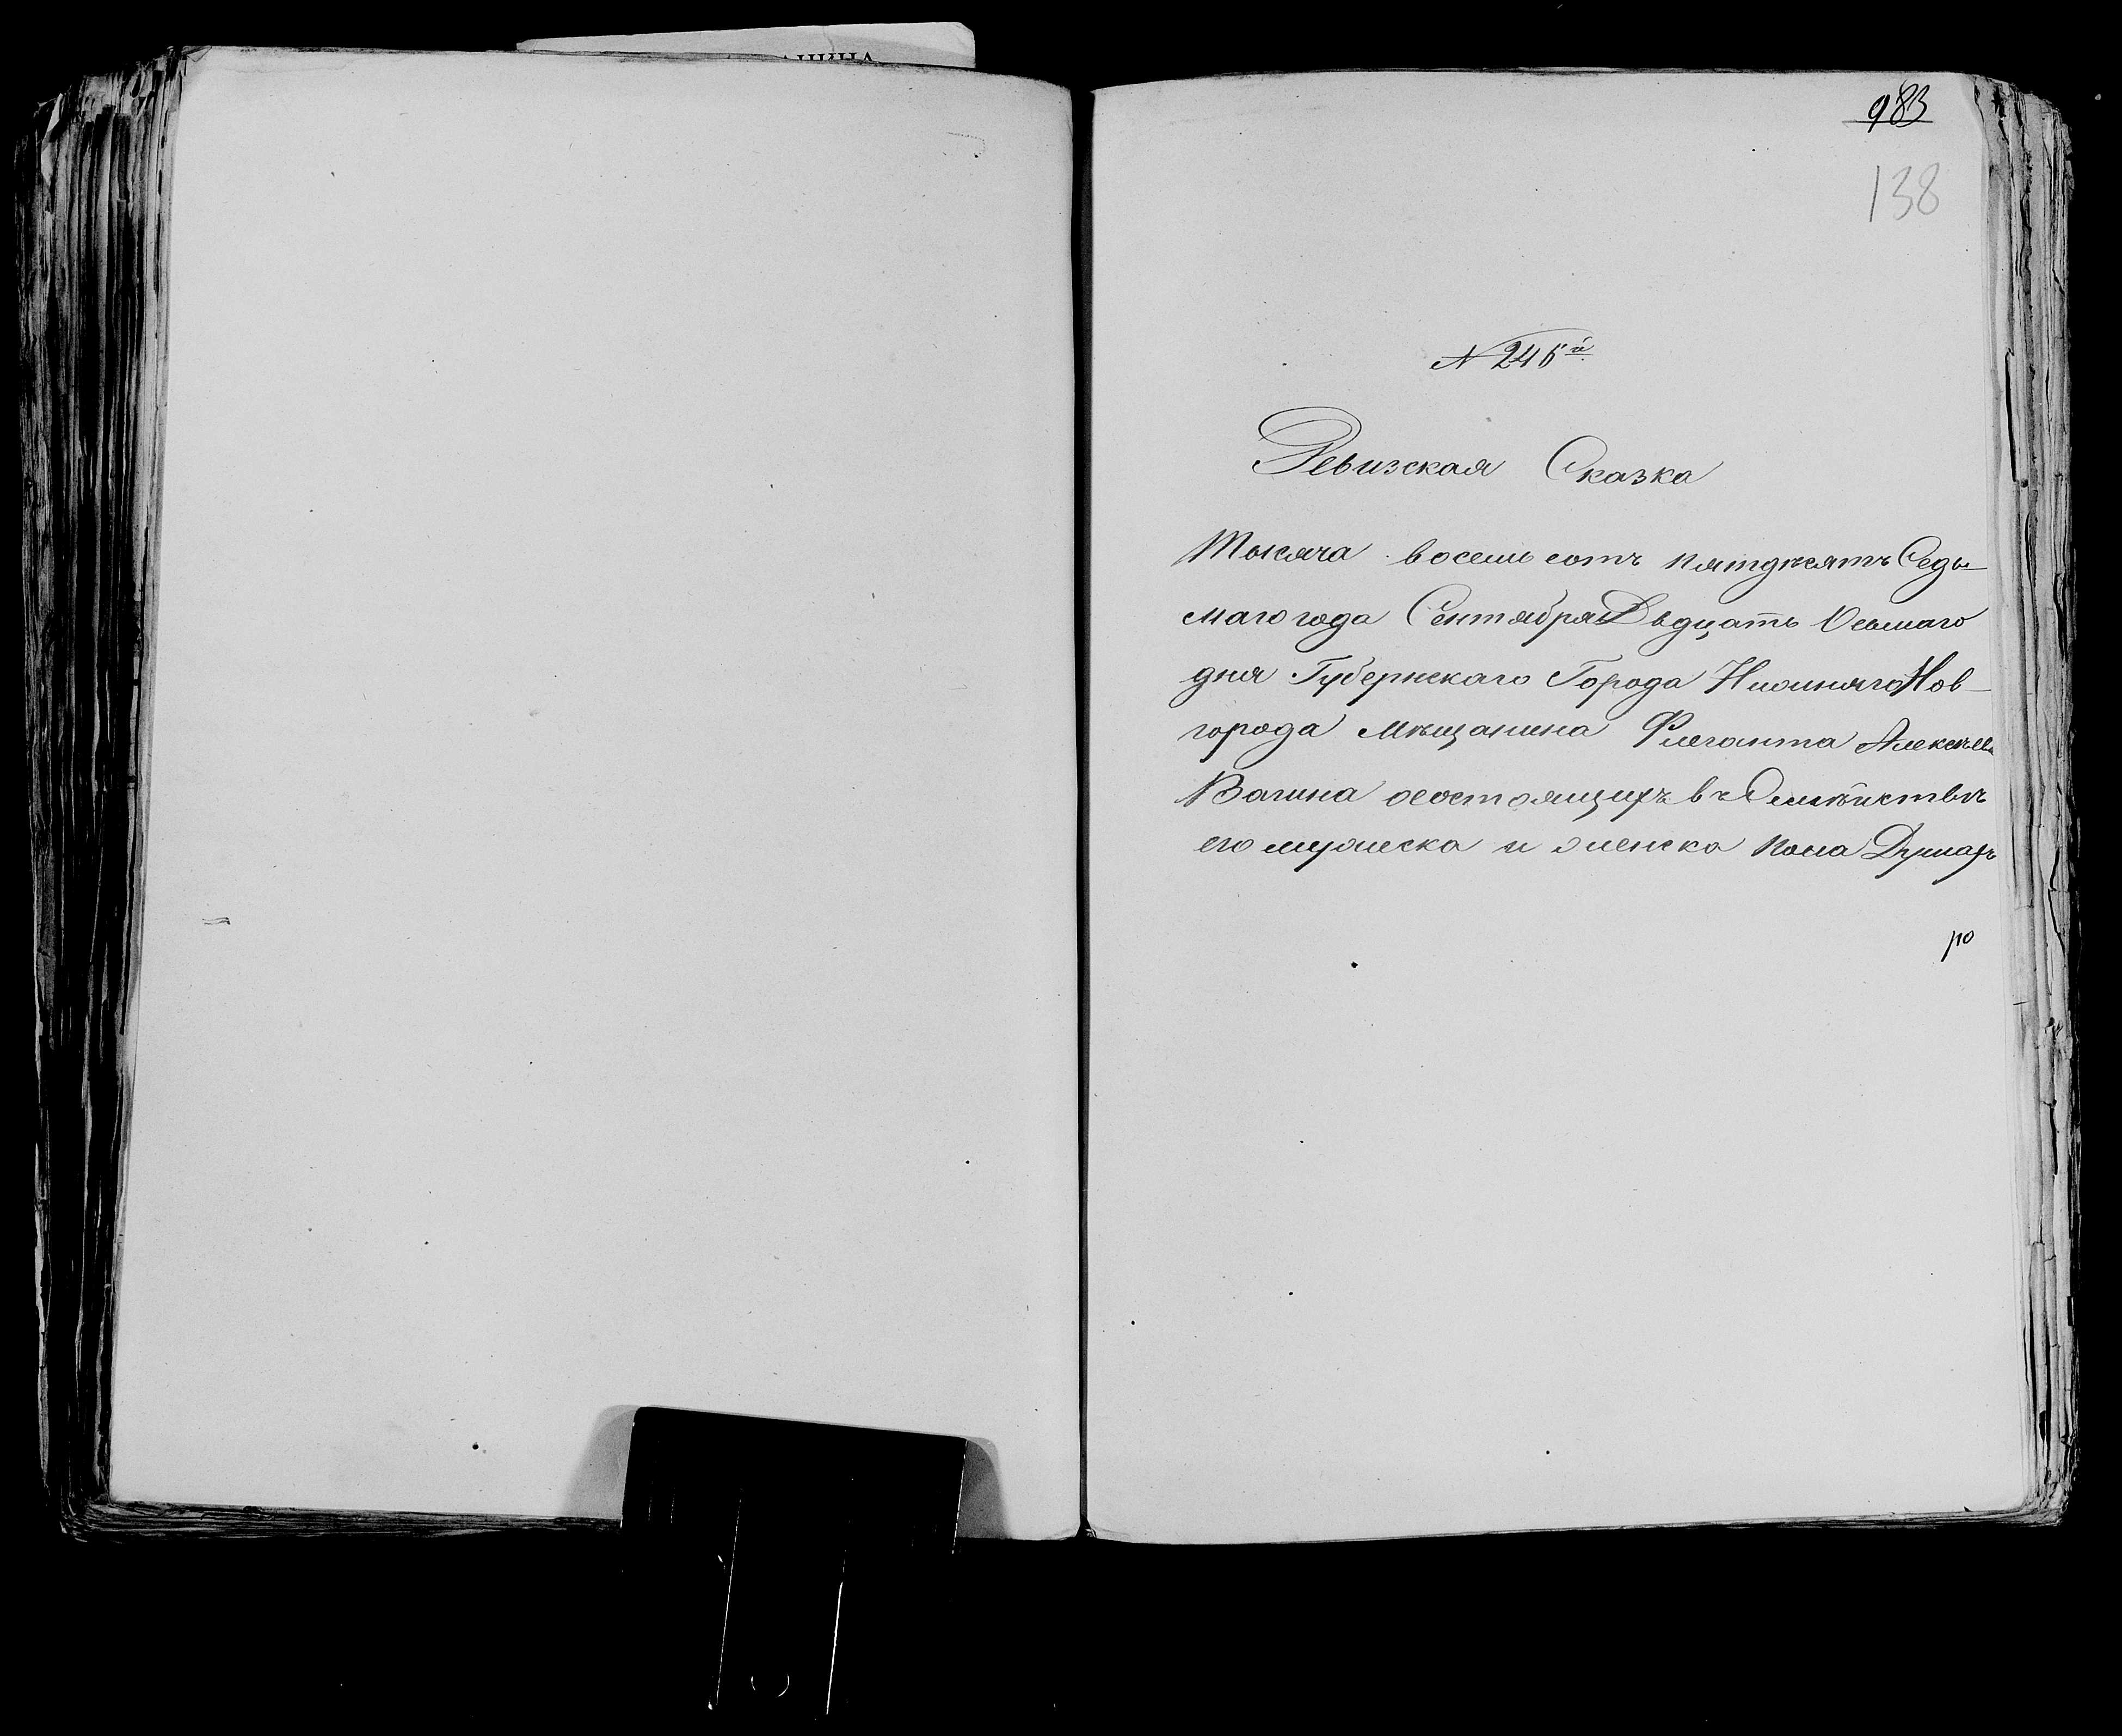 983
138
№ 246й
Ревизская Сказка
Тысяча восемь сотъ пятдѣсятъ Седь-
маго года Сентября Двдцать Осьмаго
дня Губернскаго Города Нижняго Нов-
города мѣщанина Флегонта Алексѣева
Вагина о состоящихъ въ Семѣйствѣ
его мужеска и женска пола Душахъ